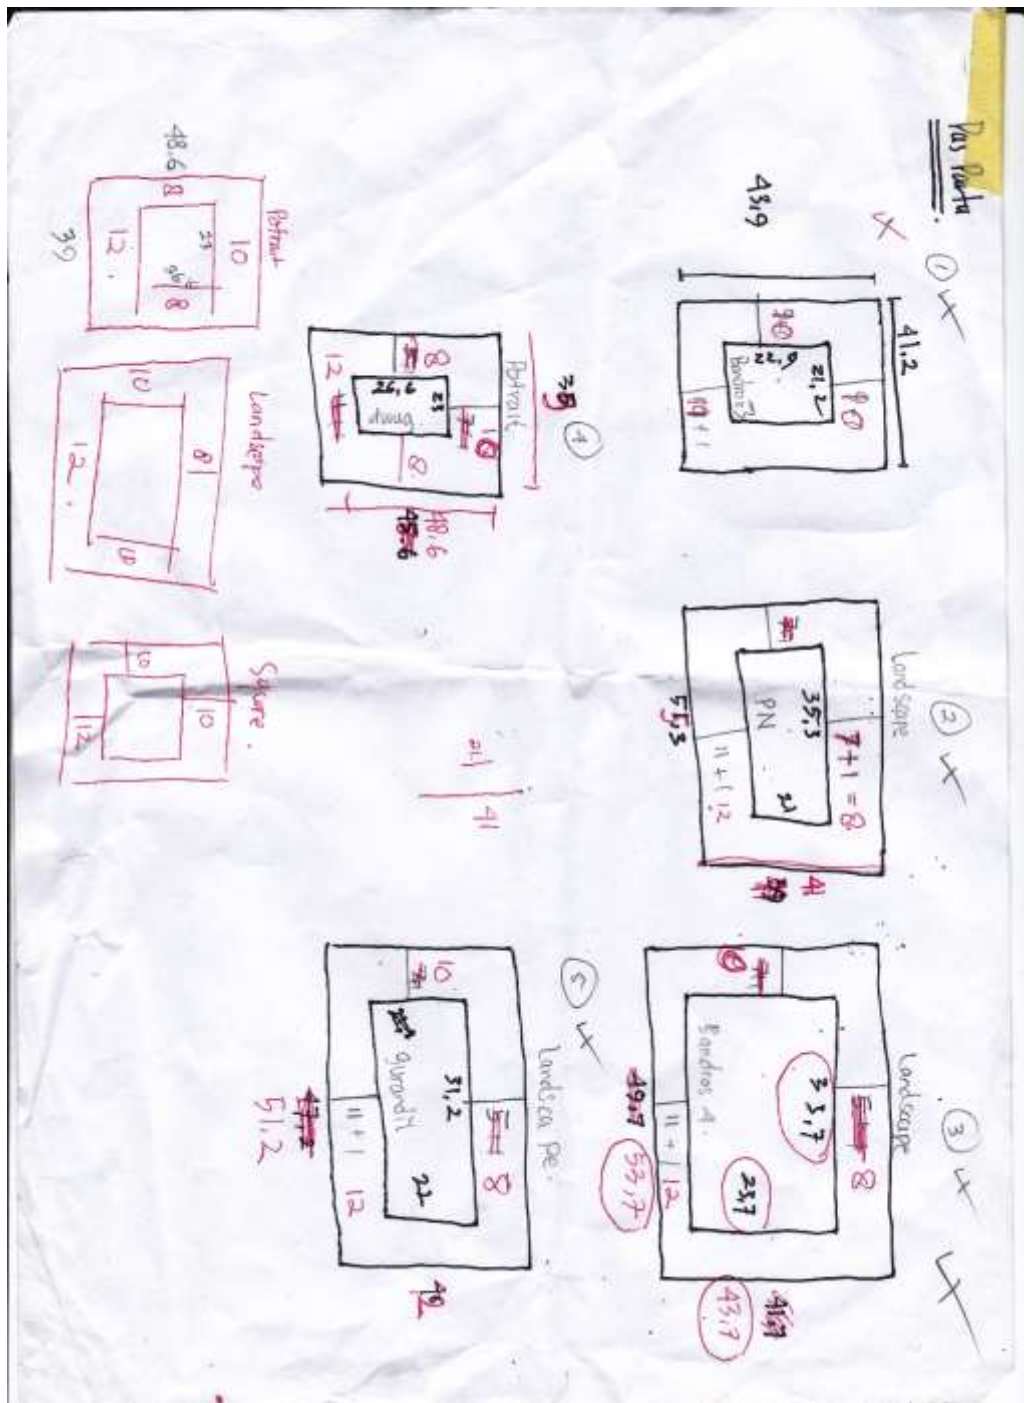 Pas Partu
①
43,9
41,2
21,2
22,9
Bandros 3
+1
② Landscape
7+1=8
35,3
21
PN
11+1 12
55,3
41
③ Landscape
8
33,7
23,7
Bandros 4.
11+1 12
49,7
53,7
43,7
④
Potrait
8
23
12
8
48.6
48.6
⑤
Landscape.
10
8
31,2
22
gurandil
11+1 12
47,2
51.2
42
21
41
Potrait
10
8
8
23
12.
48.6
39
Landscape
10
8
10
12.
Square.
10
10
12